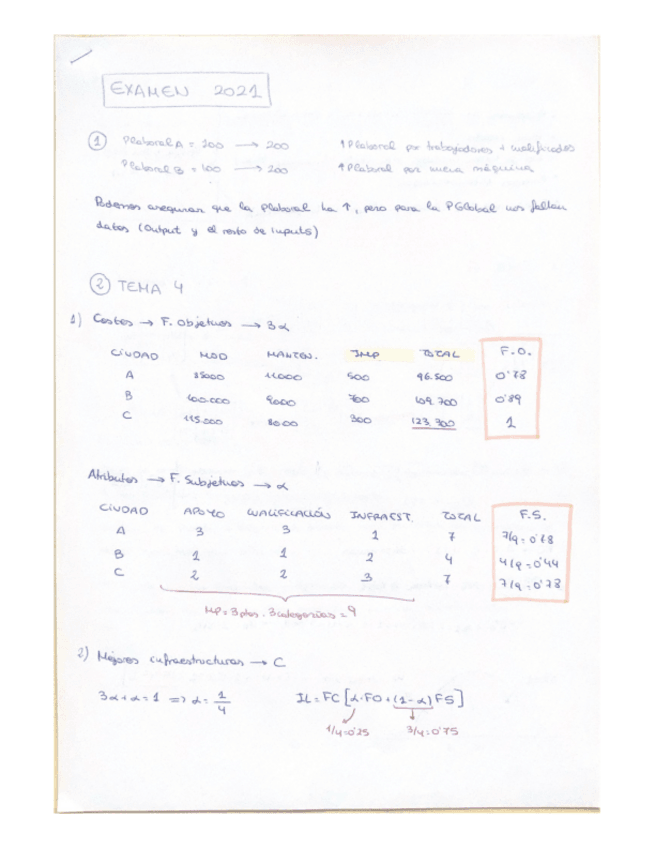 EXAMEN 2021
① Plaboral A = 200 → 200 ↑ Plaboral por trabajadores + cualificados
Plaboral B = 100 → 200 ↑ Plaboral por nueva máquina
Podemos asegurar que la Plaboral ha ↑, pero para la PGlobal nos faltan
datos (Output y el resto de Inputs)
② TEMA 4
1) Costes → F. Objetivos → 3α
CIUDAD MOD MANTEN. IMP TOTAL F.O.
A 85000 11000 500 96.500 0'78
B 100.000 9000 700 109.700 0'89
C 115.000 8000 300 123.300 1
Atributos → F. Subjetivos → α
CIUDAD APOYO CUALIFICACIÓN INFRAEST. TOTAL F.S.
A 3 3 1 7 7/9 = 0'78
B 1 1 2 4 4/9 = 0'44
C 2 2 3 7 7/9 = 0'78
MP = 3 ptos · 3 categorías = 9
2) Mejores infraestructuras → C
3α + α = 1 ⇒ α = 1/4 IL = FC [α·FO + (1-α) FS]
1/4 = 0'25 3/4 = 0'75